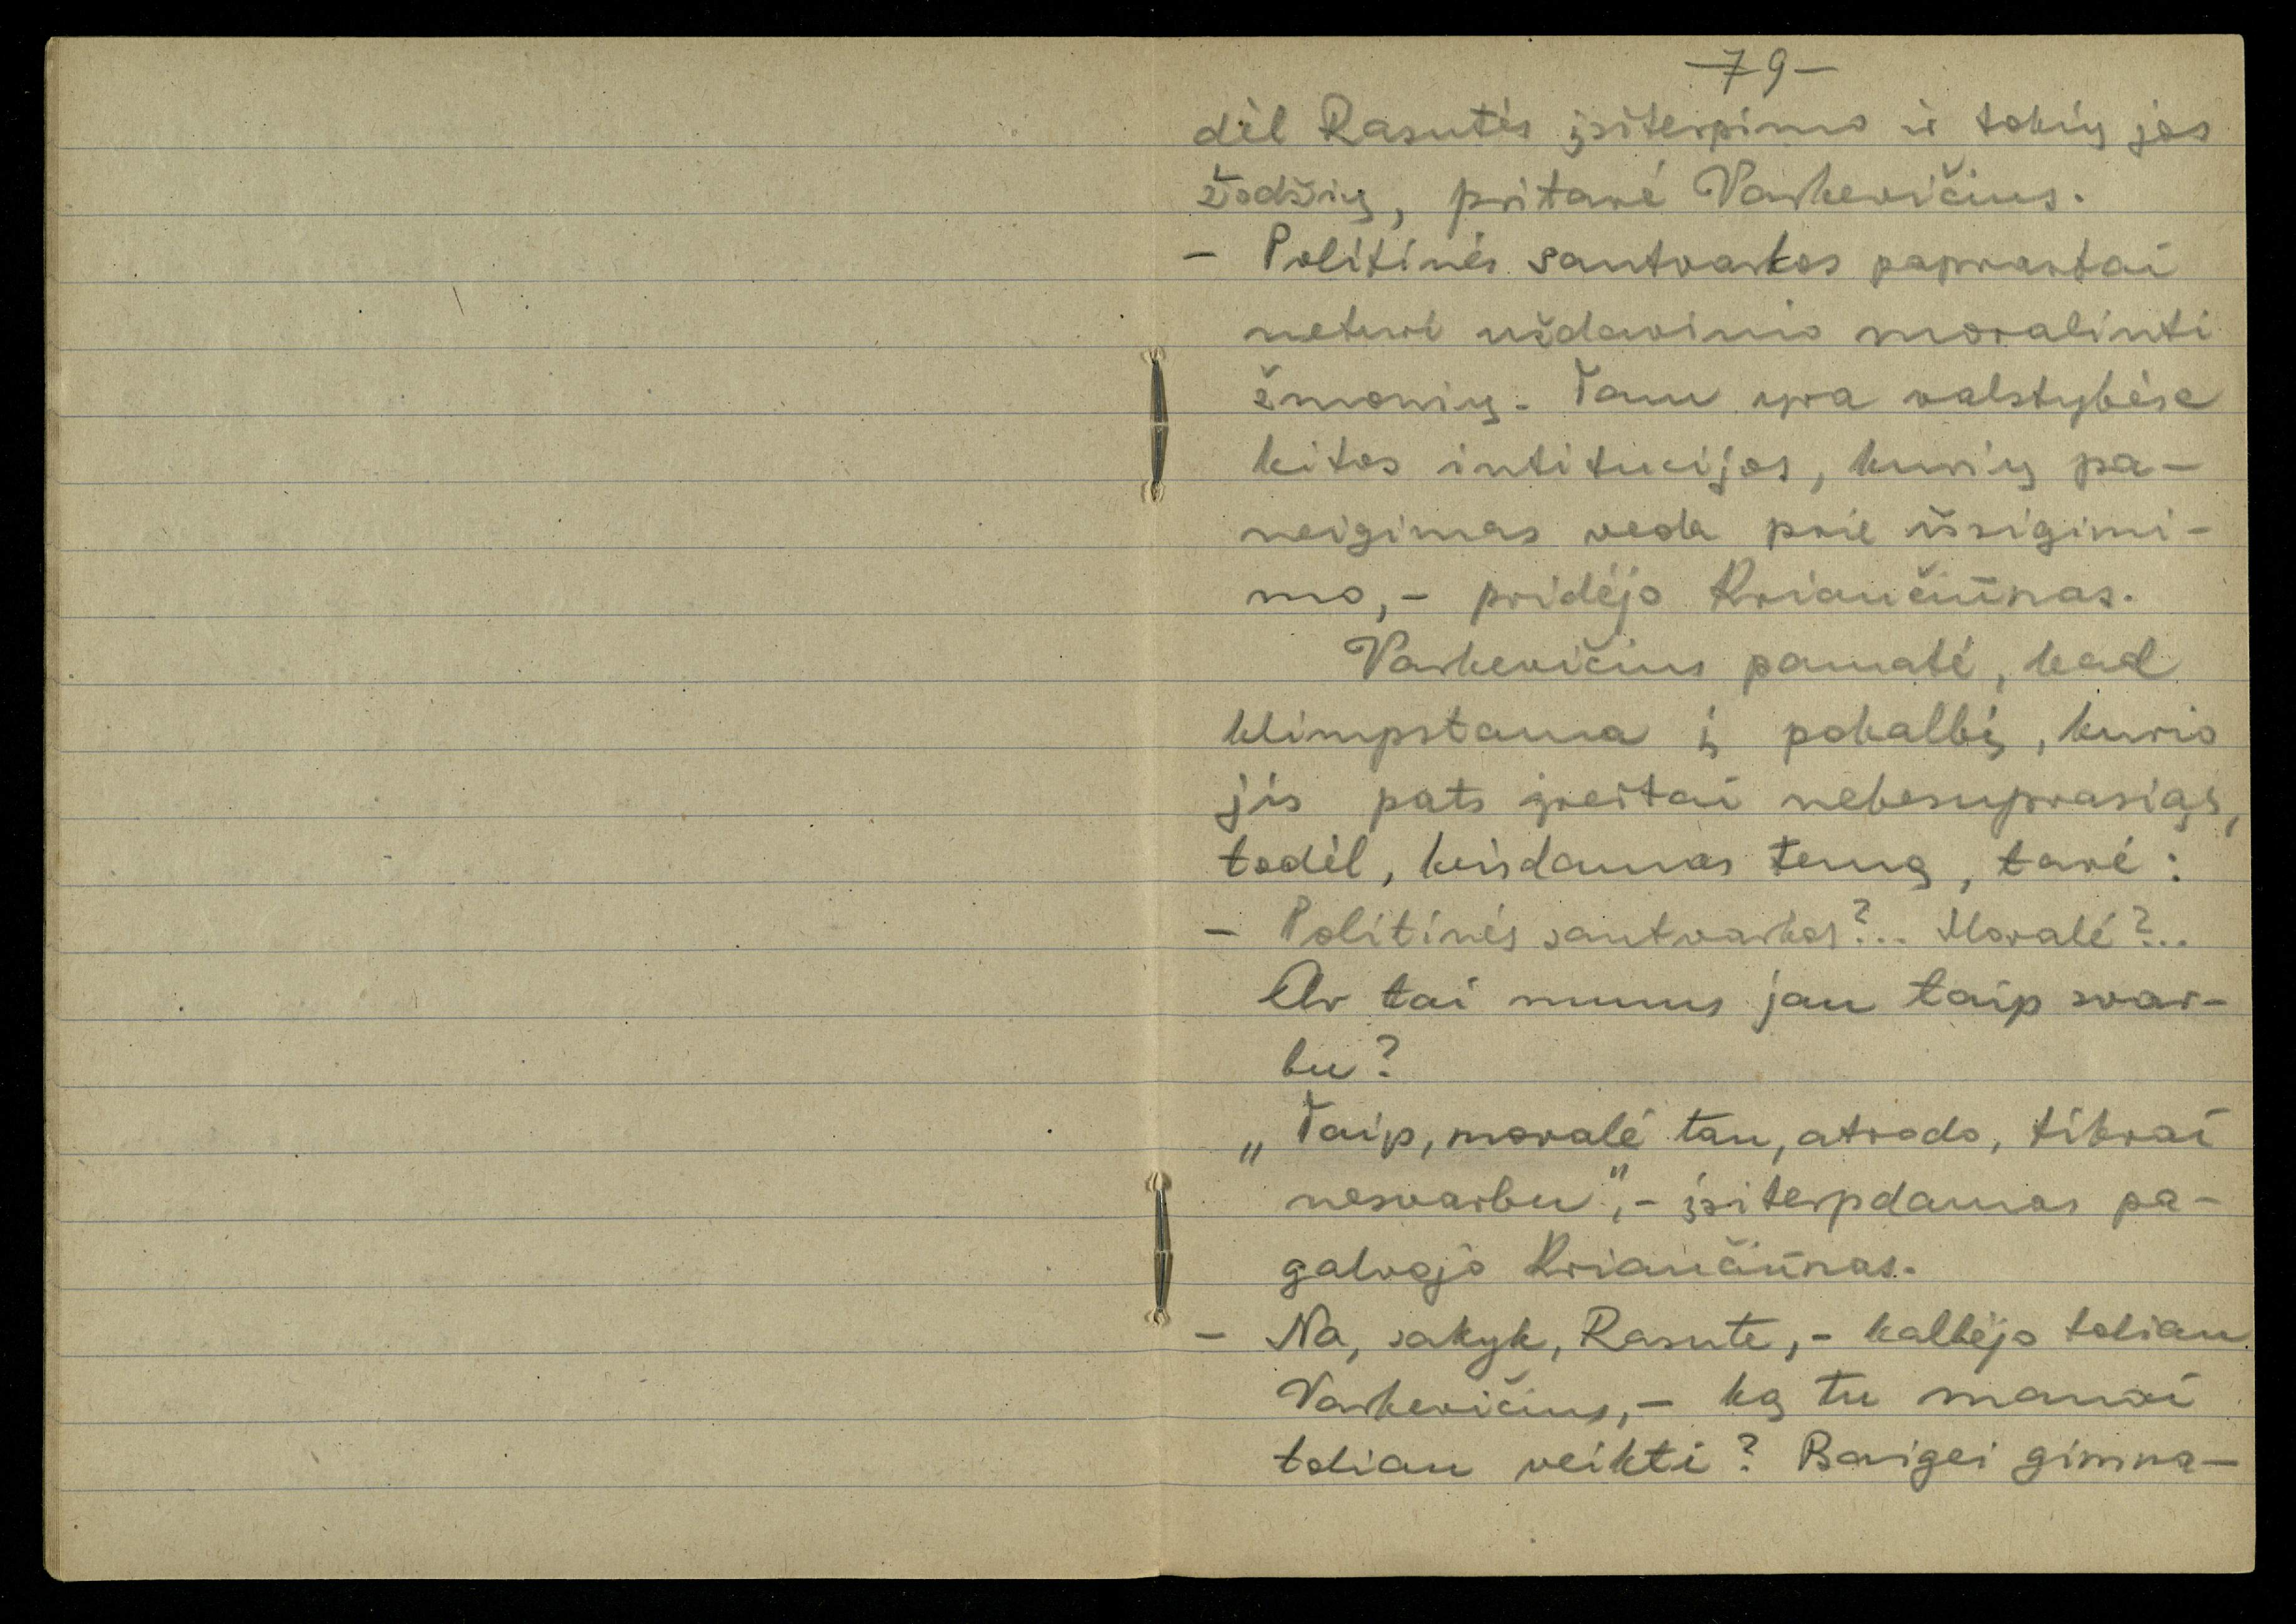 -79-
dėl Rasutės įsiterpimo ir tokių jos
žodžių, pritarė Varkevičius.
- Politinės santvarkos paprastai
neturi uždavinio moralinti
žmonių. Tam yra valstybėse
kitos intitucijos, kurių pa-
neigimas veda prie išsigimi-
mo,- pridėjo Kriaučiūnas.
Varkevičius pamatė, kad
klimpstama į pokalbį, kurio
jis pats greitai nebesuprasiąs,
todėl, keisdamas temą, tarė:
- Politinės santvarkos?.. Moralė?..
Ar tai mums jau taip svar-
bu?
„Taip, moralė tau, atrodo, tikrai
nesvarbu",- įsiterpdamas pa-
galvojo Kriaučiūnas.
- Na, sakyk, Rasute,- kalbėjo toliau
Varkevičius,- ką tu manai
toliau veikti? Baigei gimna-